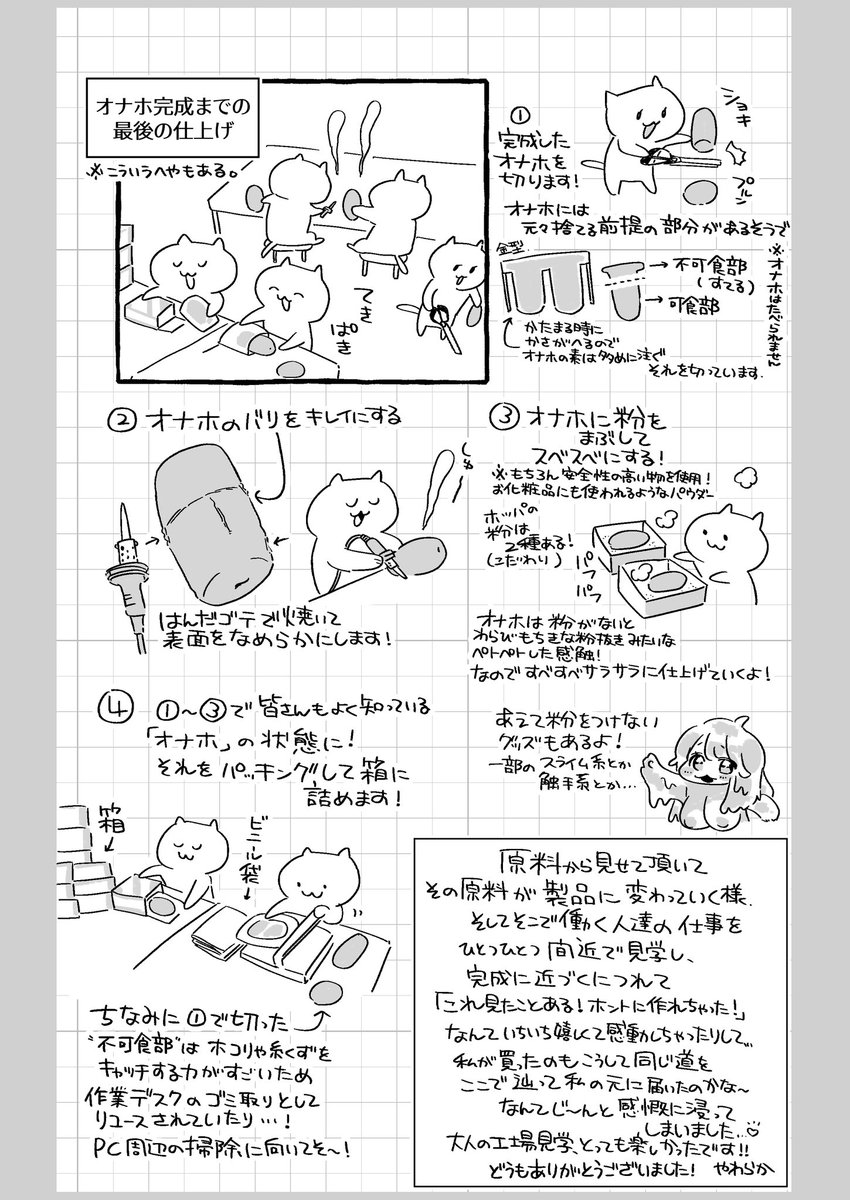 オナホ完成までの
最後の仕上げ
※こういうへやもある。
てき
ぱき
①
完成した
オナホを
切ります!
ショキ
プルン
オナホには
元々捨てる前提の部分があるそうで
金型
→不可食部
(すてる)
→可食部
※オナホはたべられません
かたまる時に
かさがへるので
オナホの素は多めに注ぐ
それを切っています.
② オナホのバリをキレイにする
はんだゴテで焼いて
表面をなめらかにします!
③ オナホに粉を
まぶして
スベスベにする!
※もちろん安全性の高い物を使用!
お化粧品にも使われるようなパウダー
ホッパの
粉は
2種ある!
(こだわり)
パフ
パフ
オナホは粉がないと
わらびもちきな粉抜きみたいな
ペトペトした感触!
なのですべすべサラサラに仕上げていくよ!
④ ①〜③で皆さんもよく知っている
「オナホ」の状態に!
それをパッキングして箱に
詰めます!
あえて粉をつけない
グッズもあるよ!
一部のスライム系とか
触手系とか…
箱
ビニール袋
ちなみに①で切った
"不可食部"はホコリや糸くずを
キャッチする力がすごいため
作業デスクのゴミ取りとして
リユースされていたり…!
PC周辺の掃除に向いてそ〜!
原料から見せて頂いて
その原料が製品に変わっていく様、
そしてそこで働く人達の仕事を
ひとつひとつ間近で見学し、
完成に近づくにつれて
「これ見たことある!ホントに作れちゃった!」
なんていちいち嬉しくて感動しちゃったりして…
私が買ったのもこうして同じ道を
ここで辿って私の元に届いたのかな〜
なんてじ〜んと感慨に浸って
しまいました…♡
大人の工場見学、とっても楽しかったです!!
どうもありがとうございました! やわらか